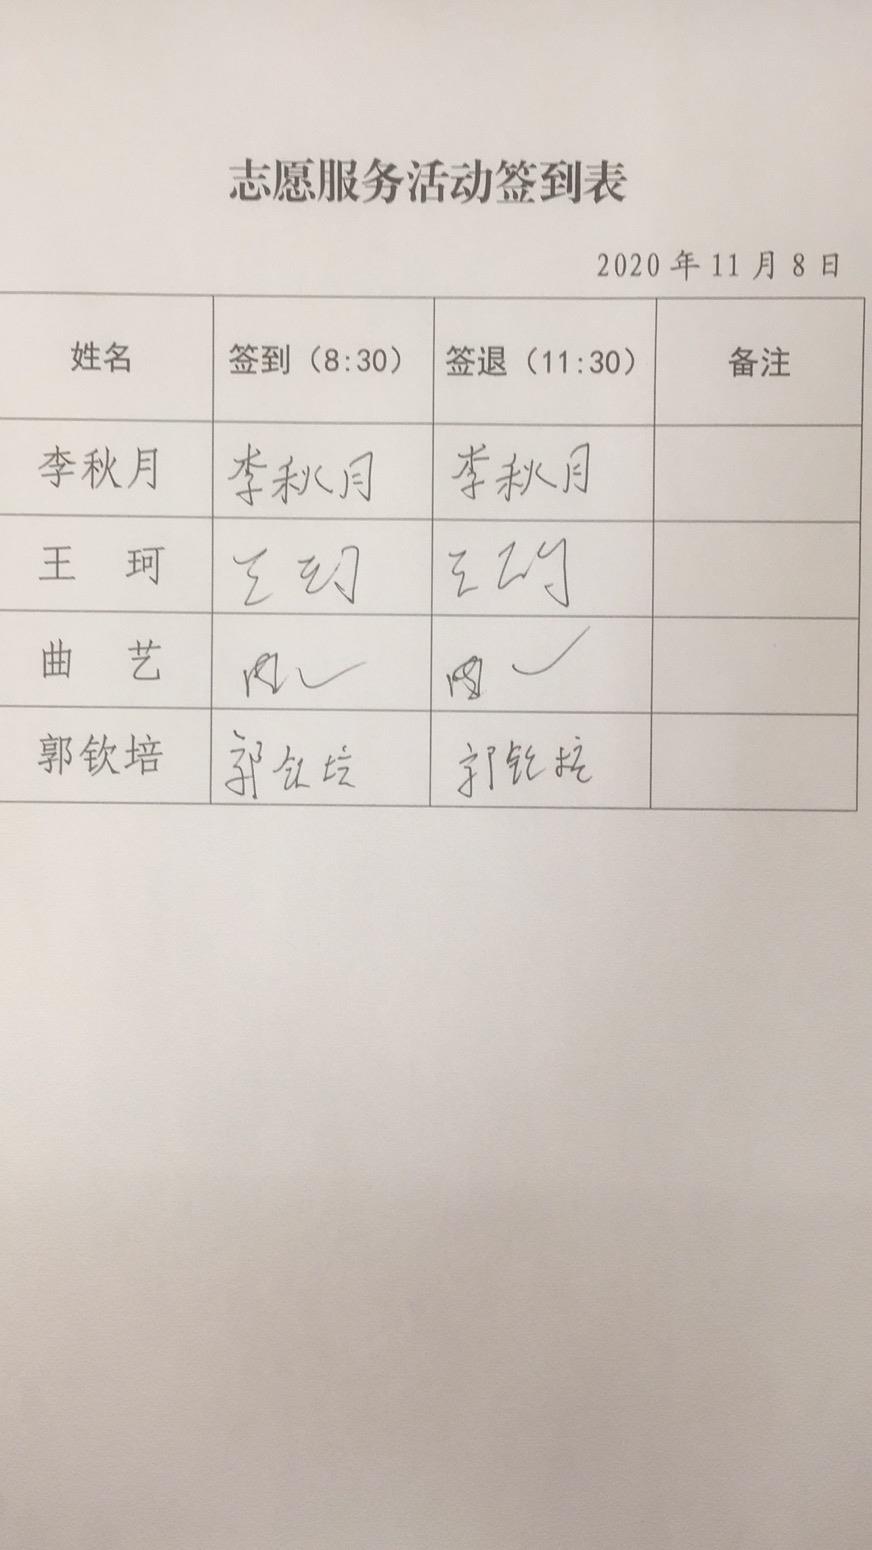 志愿服务活动签到表
2020年11月8日
姓名 签到（8:30） 签退（11:30） 备注
李秋月 李秋月 李秋月
王 珂 王珂 王珂
曲 艺
郭钦培 郭钦培 郭钦培